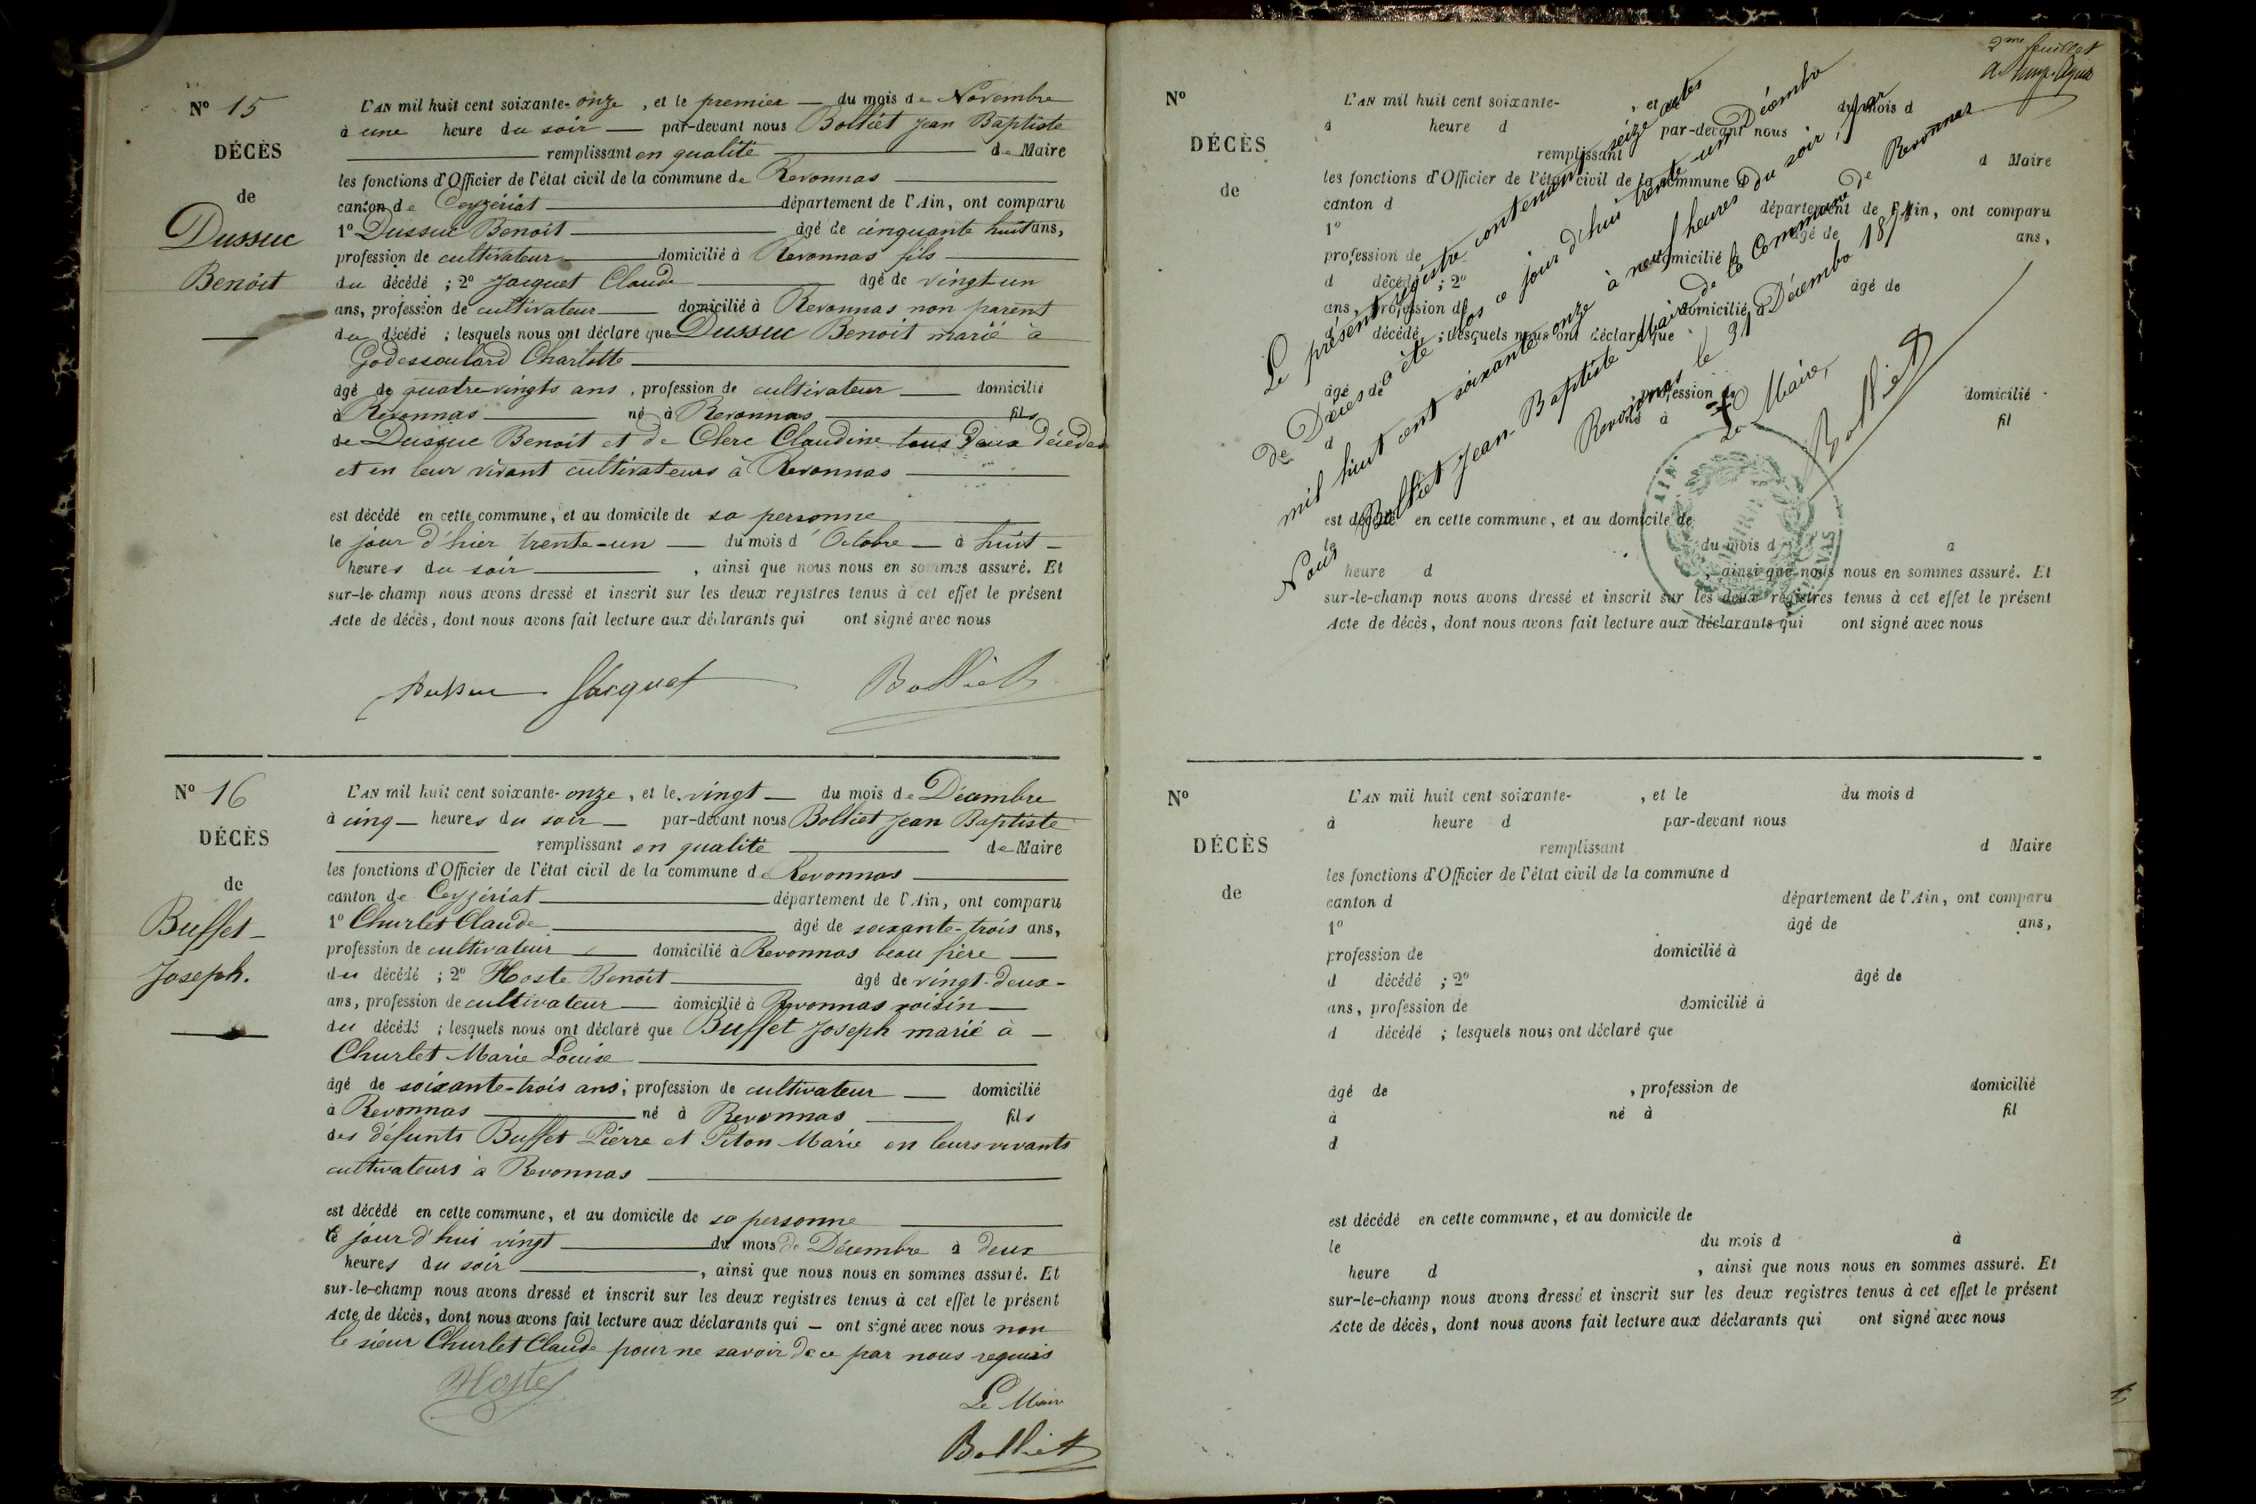 Nº 15
DÉCÈS
de
Dussuc
Benoit
L'AN mil huit cent soixante-onze, et le premier du mois de Novembre
à une heure du soir par-devant nous Bolliet Jean Baptiste
remplissant en qualité de Maire
les fonctions d'Officier de l'état civil de la commune de Revonnas
canton de Ceyzériat département de l'Ain, ont comparu
1º Dussuc Benoit âgé de cinquante huit ans,
profession de cultivateur domicilié à Revonnas fils
du décédé ; 2º Jacquet Claude âgé de vingt-un
ans, profession de cultivateur domicilié à Revonnas non parent
du décédé ; lesquels nous ont déclaré que Dussuc Benoit marié à
Godessoulard Charlotte
âgé de quatre vingts ans, profession de cultivateur domicilié
à Revonnas né à Revonnas fils
de Dussuc Benoit et de Clerc Claudine tous deux décédés
et en leur vivant cultivateurs à Revonnas
est décédé en cette commune, et au domicile de sa personne
le jour d'hier trente-un du mois d'Octobre à huit
heures du soir, ainsi que nous nous en sommes assuré. Et
sur-le-champ nous avons dressé et inscrit sur les deux registres tenus à cet effet le présent
Acte de décès, dont nous avons fait lecture aux déclarants qui ont signé avec nous
Dussuc Jacquet Bolliet
Nº 16
DÉCÈS
de
Buffet
Joseph.
L'AN mil huit cent soixante-onze, et le vingt du mois de Décembre
à cinq heures du soir par-devant nous Bolliet Jean Baptiste
remplissant en qualité de Maire
les fonctions d'Officier de l'état civil de la commune de Revonnas
canton de Ceyzériat département de l'Ain, ont comparu
1º Churlet Claude âgé de soixante-trois ans,
profession de cultivateur domicilié à Revonnas beau frère
du décédé ; 2º Hoste Benoit âgé de vingt-deux
ans, profession de cultivateur domicilié à Revonnas voisin
du décédé ; lesquels nous ont déclaré que Buffet Joseph marié à
Churlet Marie Louise
âgé de soixante-trois ans, profession de cultivateur domicilié
à Revonnas né à Revonnas fils
des défunts Buffet Pierre et Piton Marie en leurs vivants
cultivateurs à Revonnas
est décédé en cette commune, et au domicile de sa personne
le jour d'hui vingt du mois de Décembre à deux
heures du soir, ainsi que nous nous en sommes assuré. Et
sur-le-champ nous avons dressé et inscrit sur les deux registres tenus à cet effet le présent
Acte de décès, dont nous avons fait lecture aux déclarants qui ont signé avec nous non
le sieur Churlet Claude pour ne savoir de ce par nous requis
Hoste
Le Maire
Bolliet
2me feuillet
Nº
DÉCÈS
de
L'AN mil huit cent soixante- , et le du mois d
à heure d par-devant nous
remplissant d Maire
les fonctions d'Officier de l'état civil de la commune d
canton d département de l'Ain, ont comparu
1º âgé de ans,
profession de domicilié à
d décédé ; 2º âgé de
ans, profession de domicilié à
d décédé ; lesquels nous ont déclaré que
âgé de , profession de domicilié
à né à fil
d
est décédé en cette commune, et au domicile de
le du mois d à
heure d , ainsi que nous nous en sommes assuré. Et
sur-le-champ nous avons dressé et inscrit sur les deux registres tenus à cet effet le présent
Acte de décès, dont nous avons fait lecture aux déclarants qui ont signé avec nous
Le présent registre contenant seize actes
de Décès a été clos ce jour d'hui trente-un Décembre
mil huit cent soixante onze à neuf heures du soir, par
Nous Bolliet Jean-Baptiste Maire de la Commune de Revonnas
Revonnas le 31 Décembre 1871
Le Maire,
Bolliet
Nº
DÉCÈS
de
L'AN mil huit cent soixante- , et le du mois d
à heure d par-devant nous
remplissant d Maire
les fonctions d'Officier de l'état civil de la commune d
canton d département de l'Ain, ont comparu
1º âgé de ans,
profession de domicilié à
d décédé ; 2º âgé de
ans, profession de domicilié à
d décédé ; lesquels nous ont déclaré que
âgé de , profession de domicilié
à né à fil
d
est décédé en cette commune, et au domicile de
le du mois d à
heure d , ainsi que nous nous en sommes assuré. Et
sur-le-champ nous avons dressé et inscrit sur les deux registres tenus à cet effet le présent
Acte de décès, dont nous avons fait lecture aux déclarants qui ont signé avec nous